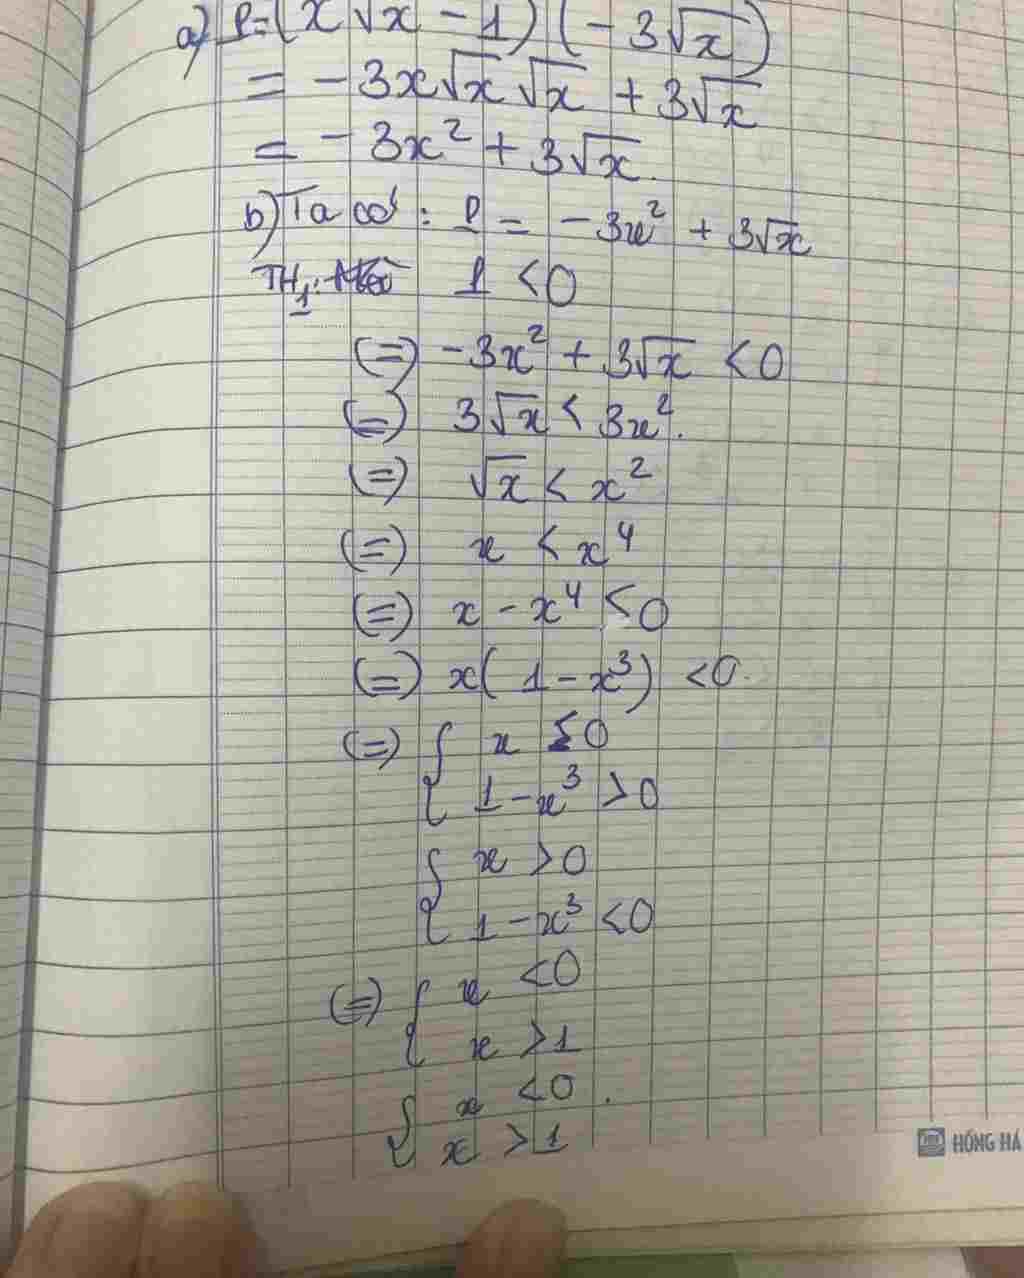 a) P=(x√x - 1)(-3√x)
= -3x√x√x + 3√x
= -3x² + 3√x.
b) Ta có: P = -3x² + 3√x
TH1: P < 0
(=) -3x² + 3√x < 0
(=) 3√x < 3x².
(=) √x < x²
(=) x < x⁴
(=) x - x⁴ < 0
(=) x(1 - x³) < 0.
(=) { x < 0
1 - x³ > 0
{ x > 0
1 - x³ < 0
(=) { x < 0
x > 1
{ x < 0.
x > 1
HỒNG HÀ